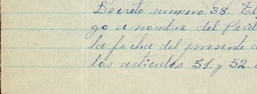 Decreto numero 38. El
go a nombre del Perit
la fecha del presente
los articulos 51. y 52.